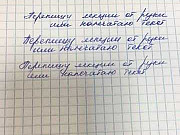 Перепишу лекции от руки
или напечатаю текст
Перепишу лекции от руки
или напечатаю текст
Перепишу лекции от руки
или напечатаю текст